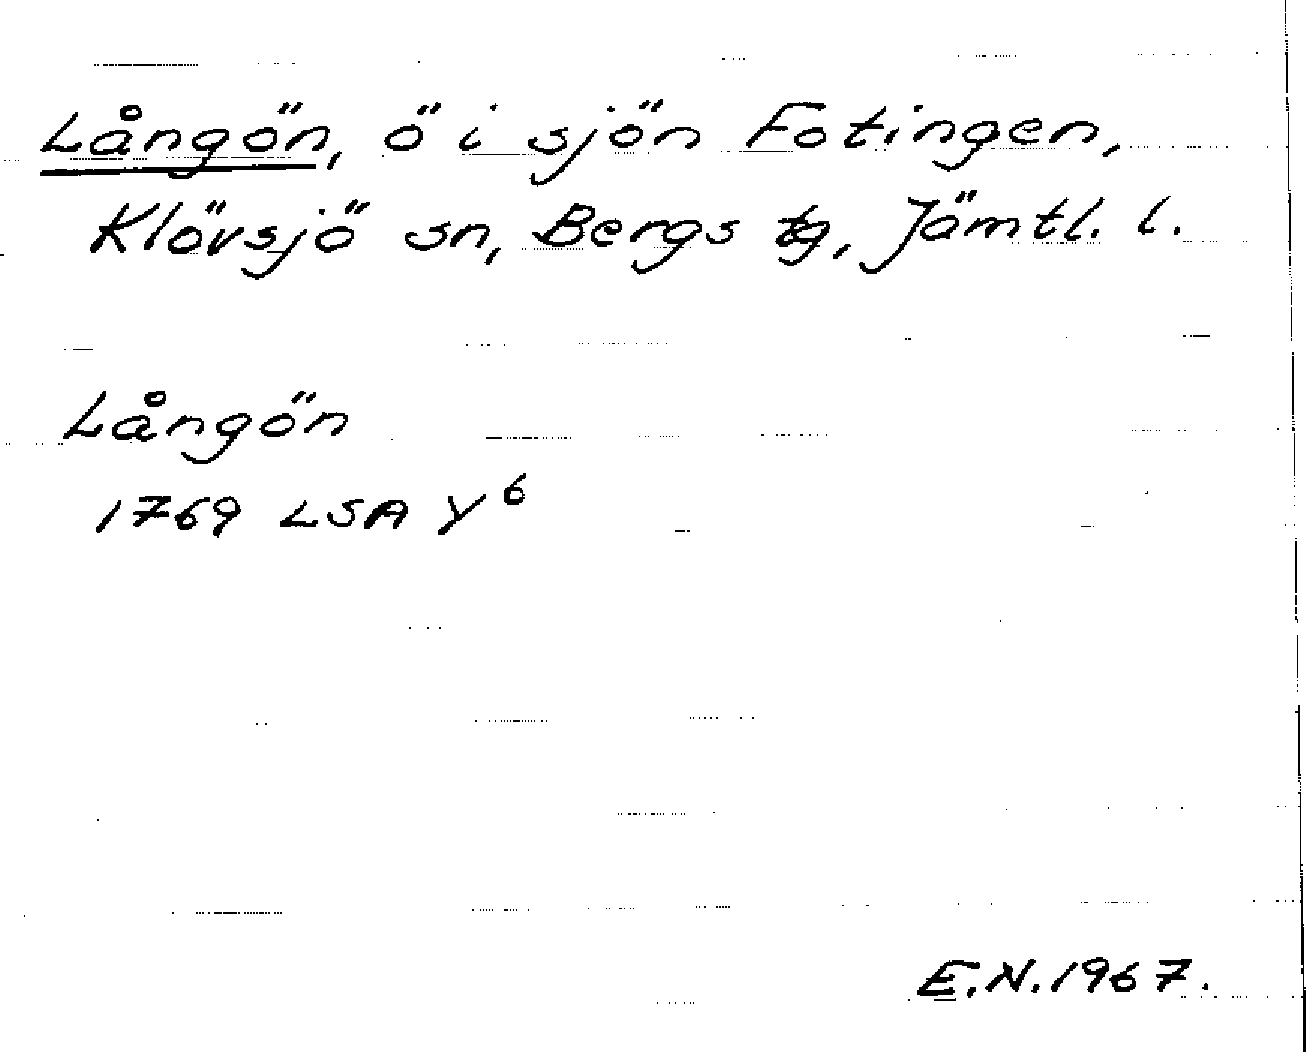 Långön, ö i sjön Fotingen,
Klövsjö sn, Bergs tg, Jämtl. l.
Långön
1769 LSA Y⁶
E.N. 1967.